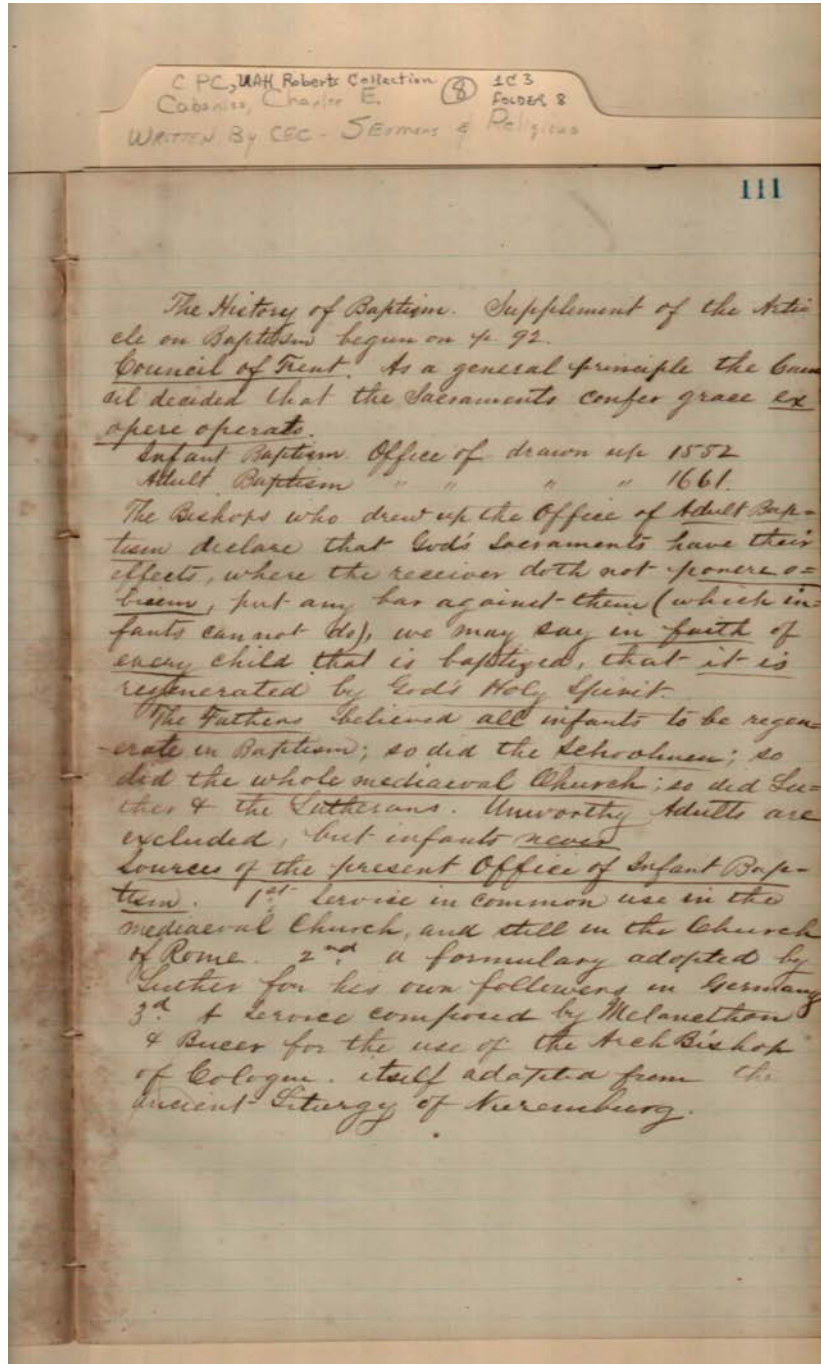 C PC, UAH Roberts Collection (8) 1C3
Cabaniss, Charles E. FOLDER 8
WRITTEN By CEC - SErmons & Religious
111
The History of Baptism. Supplement of the Arti-
cle on Baptism begun on p. 92.
Council of Trent. As a general principle the Coun
cil decided that the Sacraments confer grace ex
opere operato.
Infant Baptism Office of drawn up 1552
Adult Baptism " " " " 1661.
The Bishops who drew up the Office of Adult Bap-
tism declare that God's Sacraments have their
effects, where the receiver doth not ponere o-
bicem, put any bar against them (which in-
fants can not do), we may say in faith of
every child that is baptized, that it is
regenerated by God's Holy Spirit.
The Fathers believed all infants to be regen-
erate in Baptism; so did the Schoolmen; so
did the whole mediaeval Church; so did Lu-
ther & the Lutherans. Unworthy Adults are
excluded, but infants never
Sources of the present Office of Infant Bap-
tism. 1st Service in common use in the
mediaeval Church, and still in the Church
of Rome. 2nd a formulary adopted by
Luther for his own followers in Germany
3d A service composed by Melancthon
& Bucer for the use of the Arch Bishop
of Cologne. itself adapted from the
ancient Liturgy of Nuremburg.